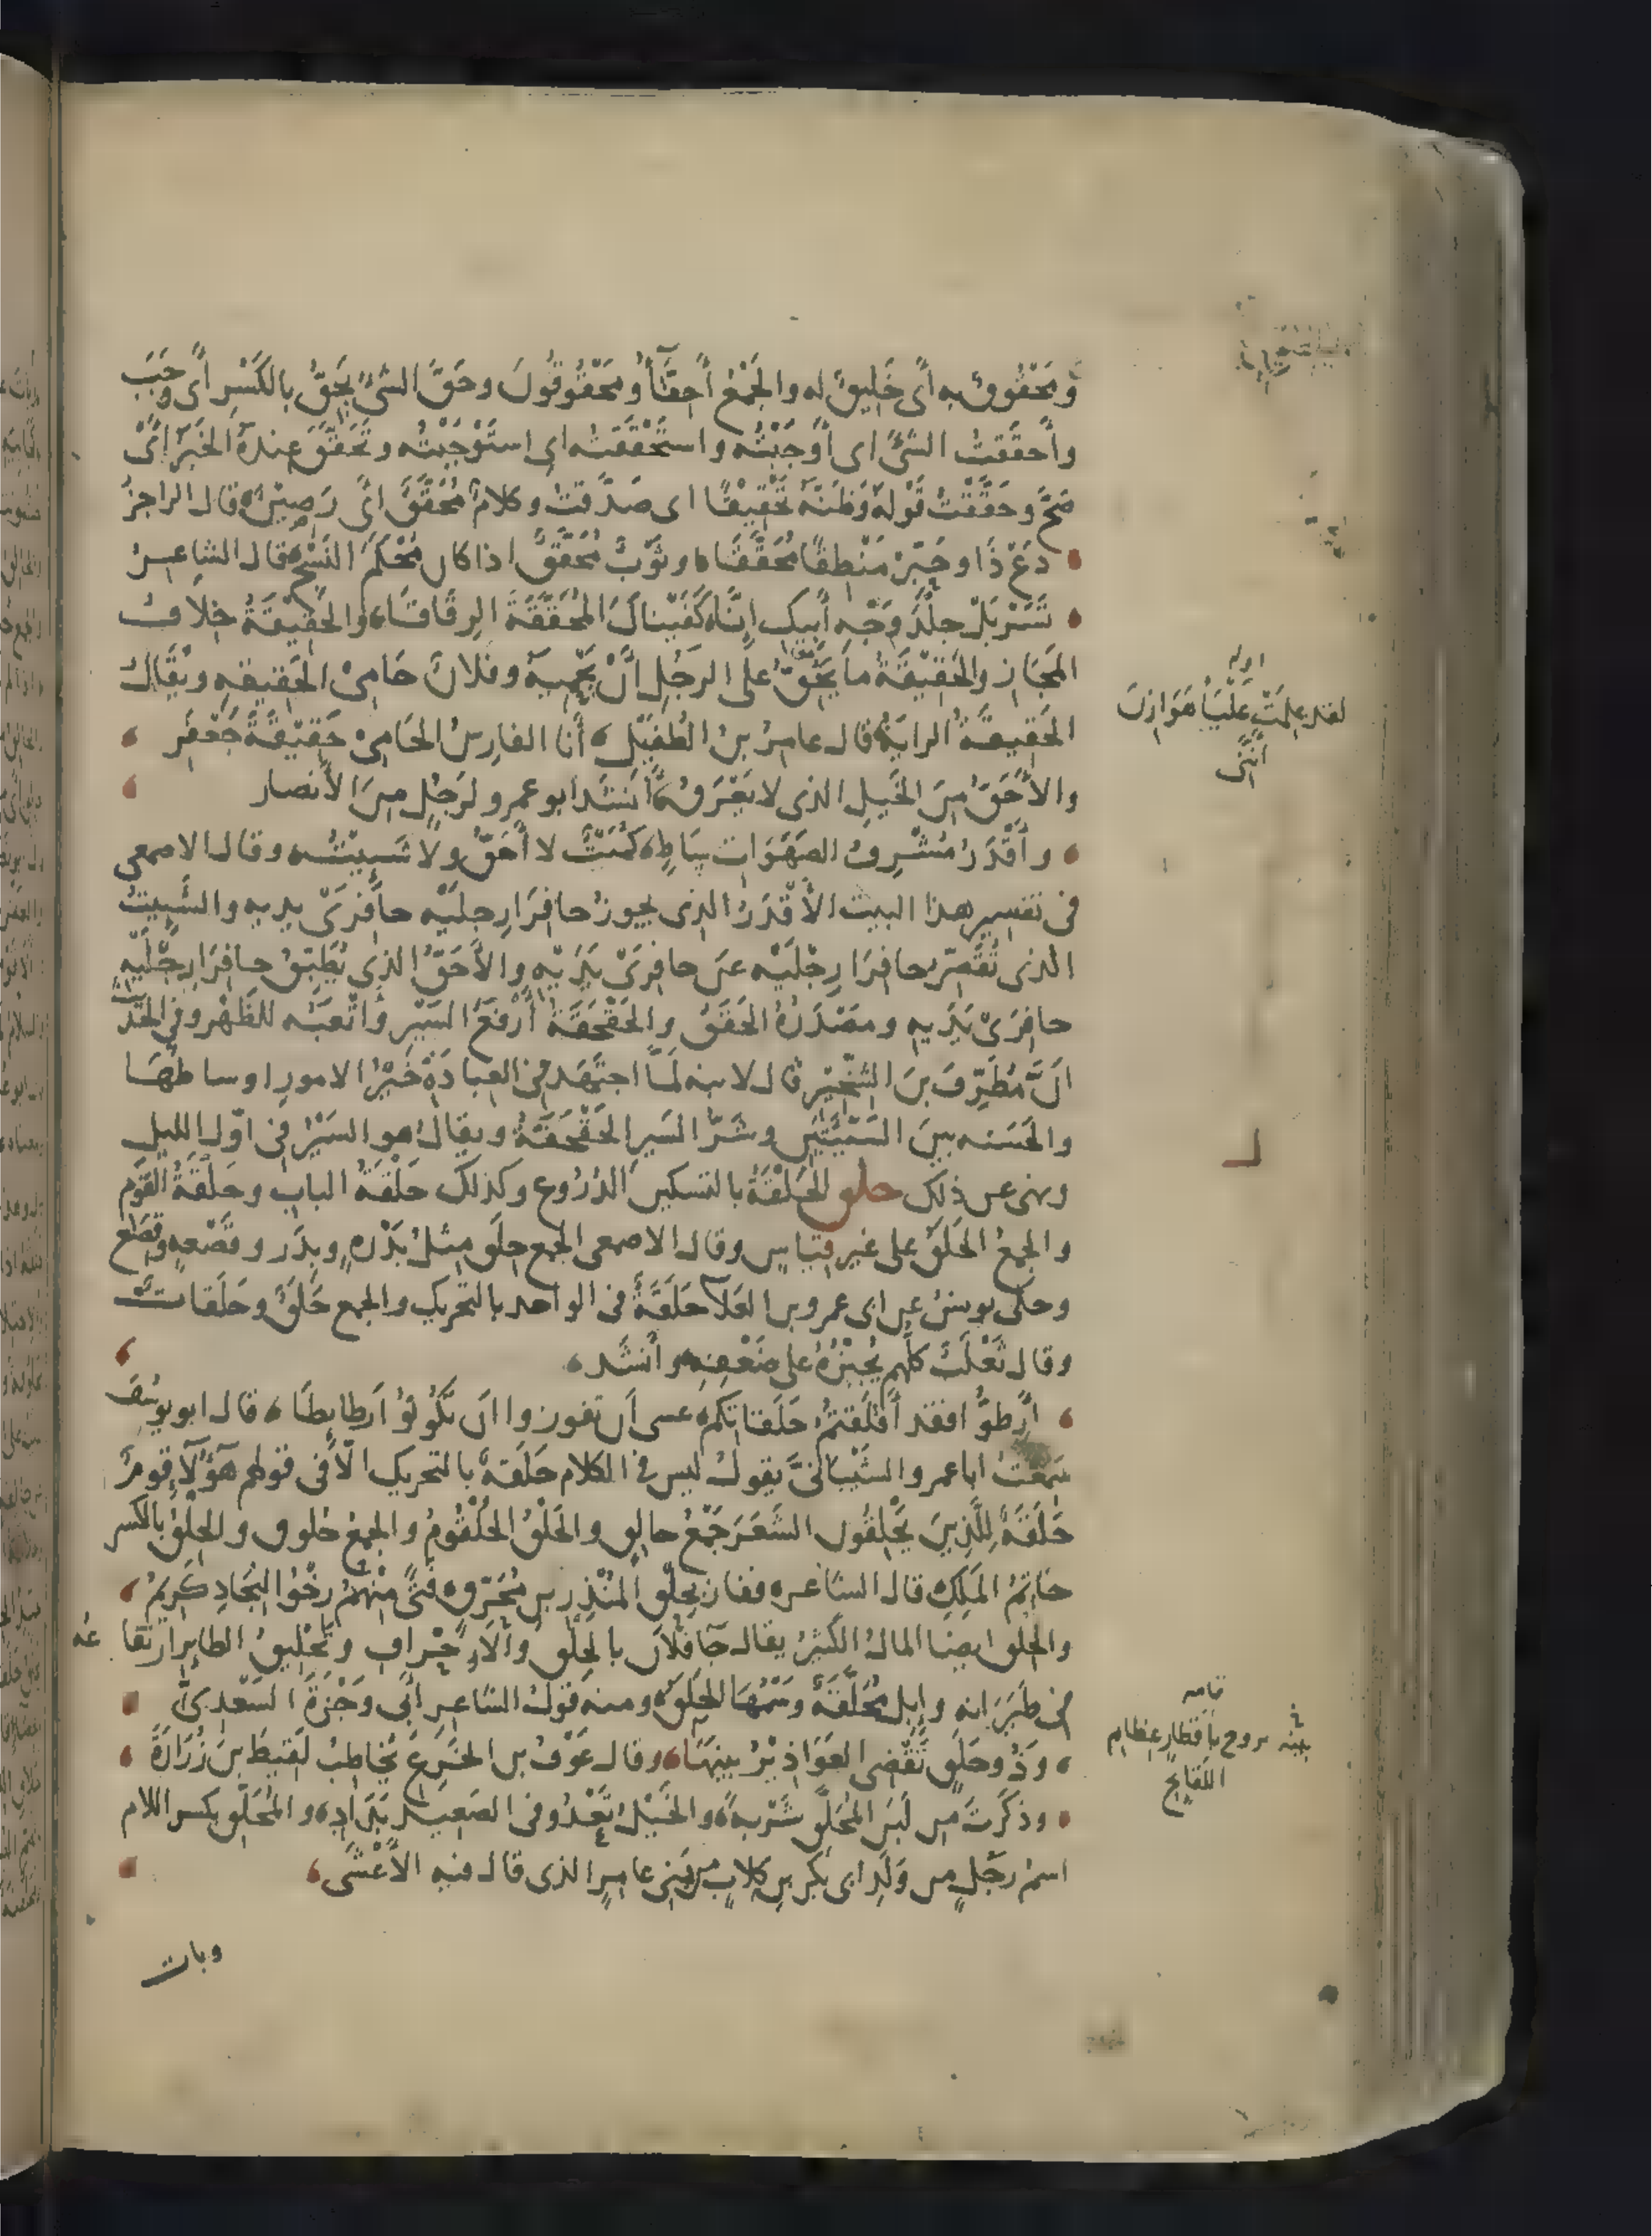 ومَحْقُوقٌ به أى خَلِيقٌ له والجَمْعُ أَحِقَّآءُ ومَحْقُوقُونَ وحَقَّ الشىُّ يَحِقُّ بالكَسْرِ أى وَجَبَ
وأَحقَقتُ الشىَّ اى أَوْجَبْتُه واستَحْقَقتُه اى استَوْجَبْتُه وتَحَقَّقَ عِندَهُ الخَبَرُ أىْ
صَحَّ وحَقَّقْتُ قَوْلَهُ وَظَنَّهُ تَحْقِيقًا اى صَدَّقتُ وكلامٌ مُحَقَّقٌ اىْ رَصِيْنٌ قال الراجزُ
دَعْ ذَا وحَبِّرْ مَنْطِقًا مُحَقَّقَا وثَوْبٌ مُحَقَّقٌ اذا كان مُحْكَمَ النَسْجِ قال الشاعِرُ
تَسَرْبَلْ جِلْدَ وَجْهِ أَبيكَ إِنَّا كَفَيْنَاكَ المُحَقَّقَةَ الرِقَاقَا والحَقِيْقَةُ خِلافُ
المَجَازِ والحَقِيْقَةُ ما يَحِقُّ على الرَجُلِ أَنْ يَحْمِيَهُ وفلانٌ حَامِىْ الحَقِيقهِ ويُقَالُ
الحَقِيقَةُ الرايَةُ قال عامِرُ بنُ الطُفَيْلِ أنَا الفارِسُ الحَامِىْ حَقِيْقَةَ جَعْفَرِ
والأَحَقُّ مِنَ الخَيلِ الذى لا يَعْرَقُ وأَنشَدَ ابو عمرو لرَجُلٍ مِنَ الأَنصار
وأَقْدَرُ مُشْرِفُ الصَهَوَات سَاطٍ كُمَيْتٌ لا أَحَقُّ ولا شَئِيْتُ وقال الاصمعى
فى تفسير هذا البيت الأَقْدَرُ الذى يجوزُ حافِرَا رِجليْه حافِرَىْ يديه والشَئِيتُ
الذى تُقَصِّرُ حافِرَا رِجْلَيْه عن حافِرَىْ يَدَيْهِ والأَحَقُّ الذى يُطَبِّقُ حافِرَا رِجْلَيْهِ
حافِرَىْ يَدَيهِ ومَصْدَرُهُ الحَقَقُ والحَقْحَقَةُ أَرْفَعُ السَيْرِ وأَتْعَبُه للظَهْرِ وفى الحَدِيث
انَّ مُطَرِّفَ بنَ الشِخِّيْرِ قال لابنه لَمَّا اجتَهَدَ فى العِبادَةِ خَيْرُ الامورِ اوساطُهَا
والحَسَنه بينَ السَيِّئَتَينِ وشَرُّ السَيرِ الحَقْحَقَةُ ويقال هو السَيْرُ فى اوّل الليل
ونهى عن ذلك حلق الحَلْقَةُ بالتسكين الدُرُوع وكذلك حَلْقَةُ البابِ وحَلْقَةُ القَوْمِ
والجمعُ الحَلَقُ على غير قياسٍ وقال الاصمعى الجمع حِلَقٌ مِثلُ بَدْرَهٍ وبِدَرٍ وقَصْعَهٍ وقِصَعٍ
وحكى يونسُ عن ابى عمرو بن العَلآءِ حَلَقَةٌ فى الواحد بالتحريك والجمع حَلَقٌ وحَلَقاتٌ
وقال ثَعْلَبٌ كلُّهم يُجِيْزُهُ على ضَعْفِه وأَنشَد
أَرِطُّوا فقد أَقلَقتُمُ حَلَقاتِكم عسى أَن تفوزوا ان تَكُونُوْا رَطَايِطَا قال ابو يوسُفَ
سَمِعْتُ ابا عمرو الشَيْبَانىَّ يقولُ ليس فى الكلام حَلَقةٌ بالتحريك الّا فى قولهم هَؤُلآءِ قومٌ
حَلَقَةٌ للَّذِينَ يَحْلِقُون الشَعَرَ جَمْعُ حالِقٍ والحَلْقُ الحُلْقُومُ والجمعُ حُلوق والحِلْقُ بالكسر
خاتِمُ المَلِكِ قال الشاعر ففاز بِحِلْقِ المُنْذِرِ بنِ مُحَرِّقٍ فَتًى مِنْهُمُ رِخْوُ النِجَادِ كَرِيمُ
والحِلق ايضا المالُ الكَثِيْرُ يقال جَآءَ فُلانٌ بالحِلْقِ والإِحْرافِ وتَحْلِيقُ الطايرِ ارتفاعُه
فى طَيَرَانِه وإبِلٌ مُحَلَّقَةٌ وَسْمُهَا الحَلَقُ ومنه قَولُ الشاعِرِ أَبى وَجْزَةَ السَعْدِىِّ
وَذُو حَلَقٍ تَقْضِى العَوَاذِيْرُ بينَهَا وقال عَوْفُ بن الخَرِعِ يُخاطِبُ لَقِيطَ بنَ زُرَارَةَ
وذكَرتَ مِن لَبَنِ المُحَلَّقِ شَرْبةً والخَيْلُ تَعْدُو فى الصَعِيدِ بَدَادِ والمُحَلِّق بكسر اللام
اسمُ رَجُلٍ مِن وَلَدِ ابى بَكْرِ بنِ كِلابٍ مِن بَنِى عامِرٍ الذى قال فيه الأَعْشَى
وبات
اوله
لقد عَلِمَتْ عُلْيَا هَوَازِنَ
أَنَّنِى
تمامه
يروح باقطارٍ عِظامِ
اللقايح